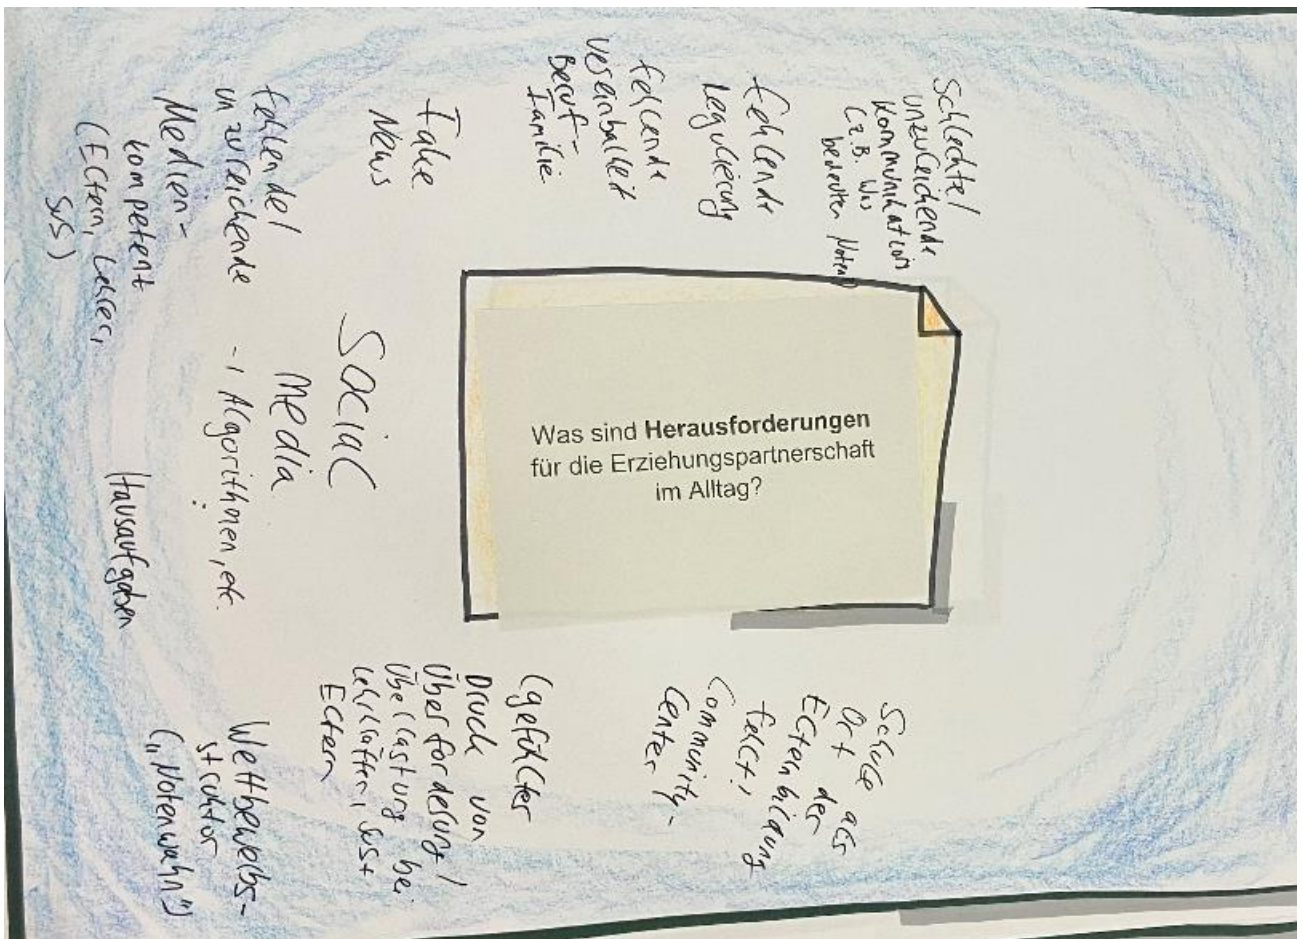 Was sind Herausforderungen
für die Erziehungspartnerschaft
im Alltag?
Schlechte/
unzureichende
Kommunikation
(z.B. Was
bedeuten Noten)
Fehlende
Regulierung
Fehlende
Vereinbarkeit
Beruf-
Familie
Fake
News
Social
Media
Fehlende/
unzureichende
Medien-
kompetent
(Eltern, Lehrer,
SuS)
Algorithmen, etc.
Hausaufgaben
Schule als
Ort der
Elternbildung
fehlt,
Community-
Center
(gefühlter
Druck von
Überforderung/
Überlastung bei
Lehrkräften,
Eltern
Wettbewerbs-
struktur
("Notenwahn")